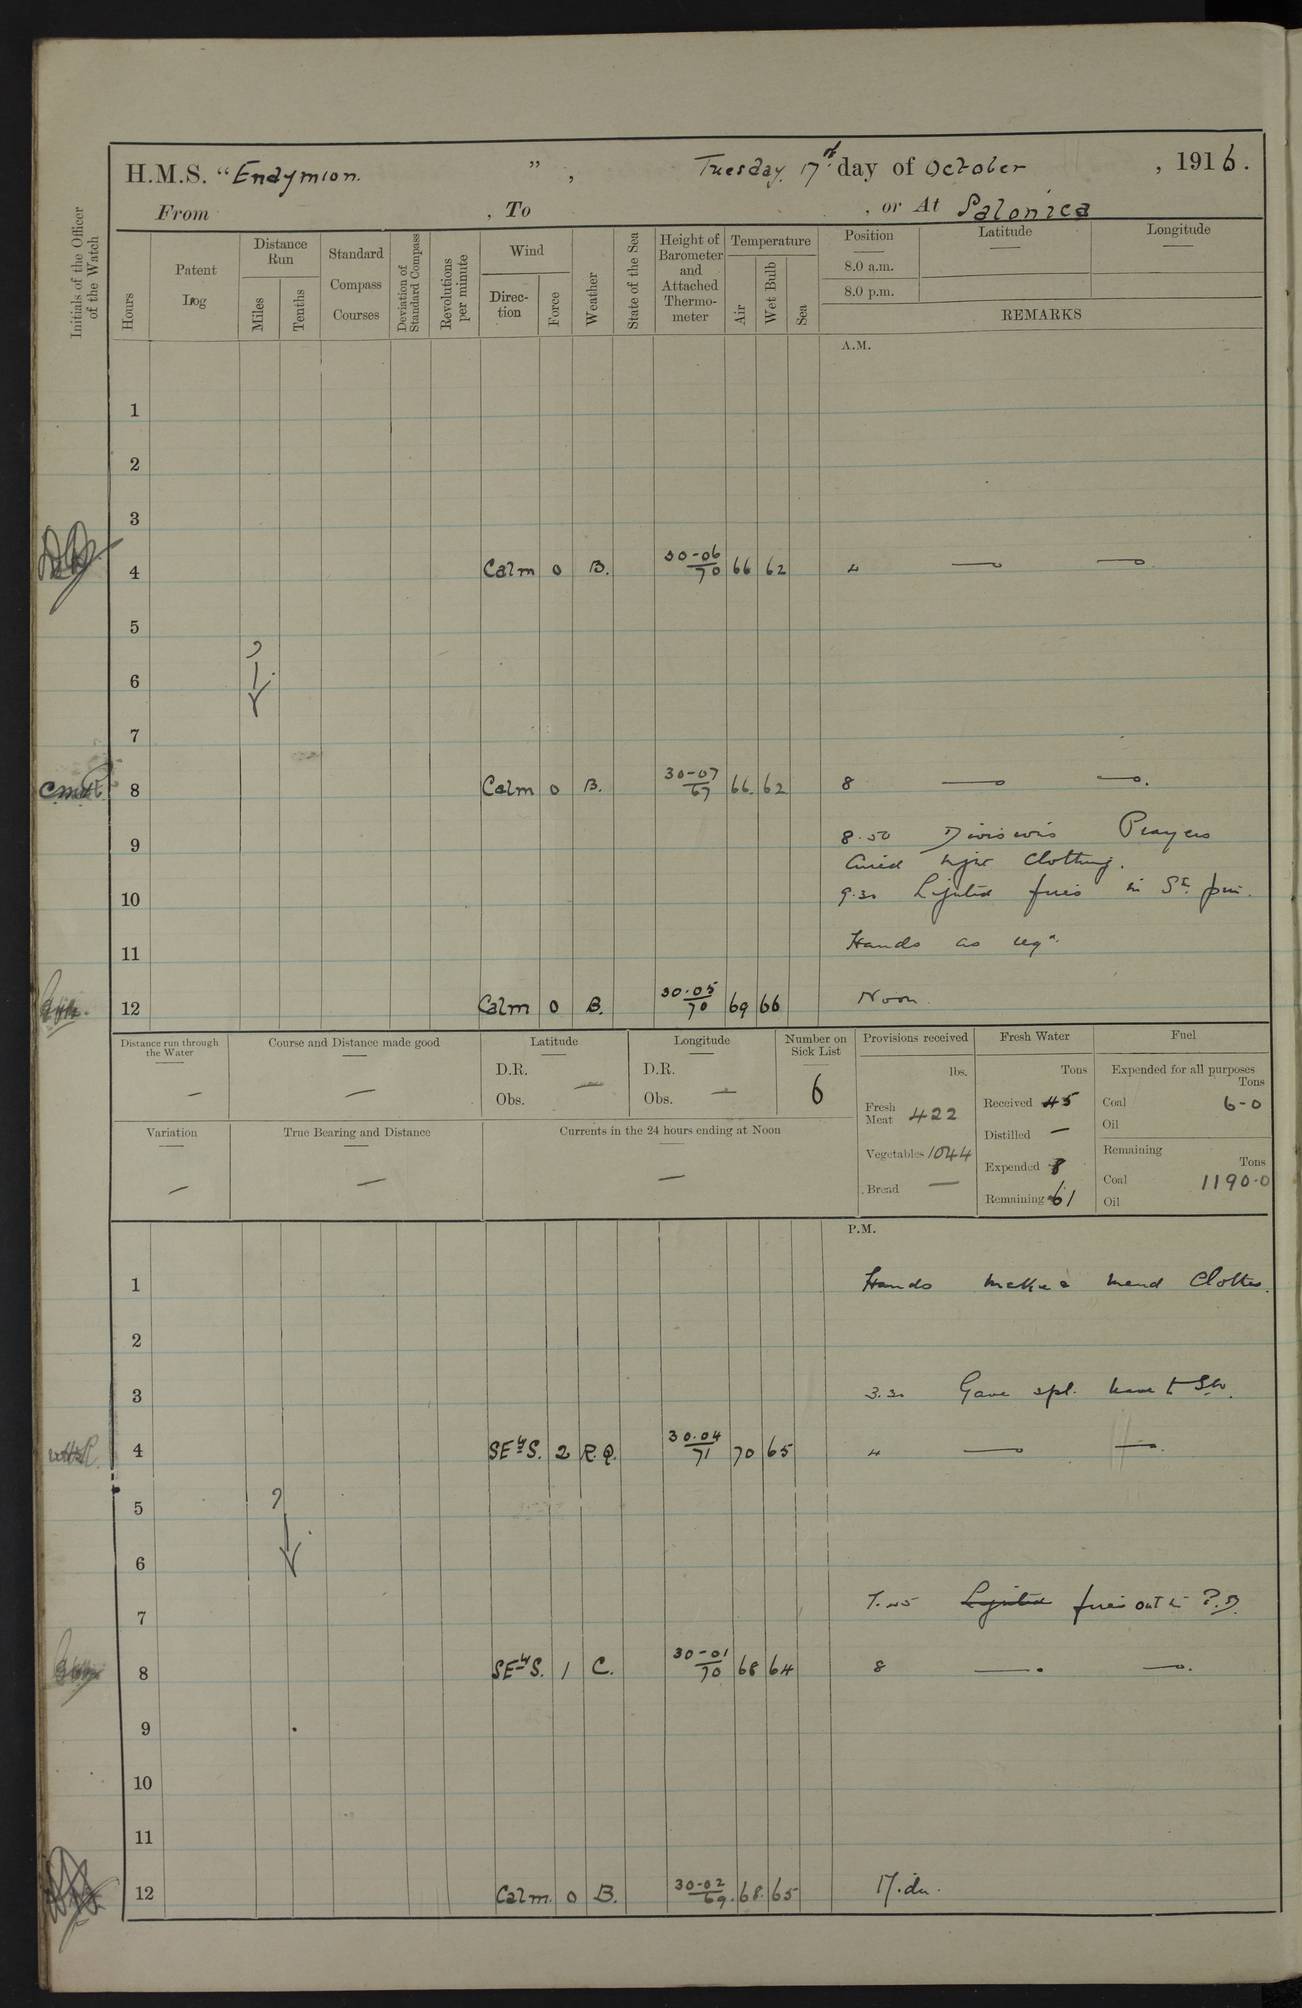 H.M.S. “Endymion. ” , Tuesday. 17th day of October , 1916.
From , To , or At Salonica
Initials of the Officer of the Watch
Hours
Patent Log
Distance Run
Miles
Tenths
Standard Compass Courses
Deviation of Standard Compass
Revolutions per minute
Wind
Direction
Force
Weather
State of the Sea
Height of Barometer and Attached Thermometer
Temperature
Air
Wet Bulb
Sea
Position
Latitude
Longitude
8.0 a.m.
8.0 p.m.
REMARKS
A.M.
1
2
3
4 Calm 0 B. 30-06/70 66 62 4
5
6
7
8 Calm 0 B. 30-07/67 66. 62 8
8.50 Divisions Prayers
9
Aired light clothing.
10 9.30 Lighted fires in St. pin.
11 Hands as req.
12 Calm 0 B. 30.05/70 69 66 Noon.
Distance run through the Water —
Course and Distance made good —
Latitude
D.R.
Obs. —
Longitude
D.R.
Obs. —
Number on Sick List
6
Provisions received
lbs.
Fresh Meat 422
Vegetables 1044
Bread —
Fresh Water
Tons
Received 45
Distilled —
Expended 8
Remaining 61
Fuel
Expended for all purposes
Tons
Coal 6-0
Oil
Remaining
Tons
Coal 1190-0
Oil
Variation —
True Bearing and Distance —
Currents in the 24 hours ending at Noon —
P.M.
1 Hands make & mend Clothes.
2
3 3.30 Gave spl. leave to
4 SE by S. 2 R.Q. 30.04/71 70 65 4
5
6
7 7.45 Lighted fires out in P.B.
8 SE by S. 1 C. 30-01/70 68 64 8
9
10
11
12 Calm. 0 B. 30-02/69. 68. 65 Mdn.